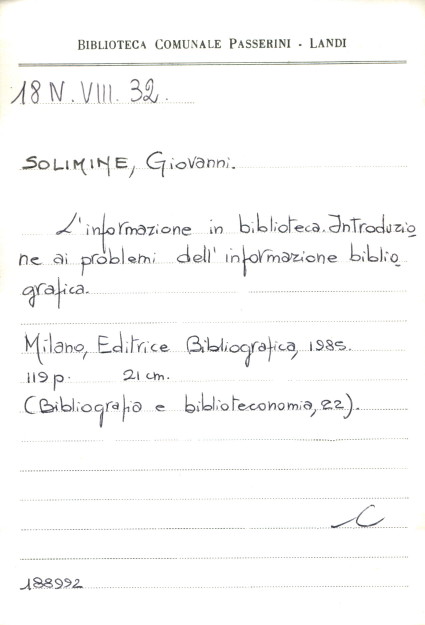 BIBLIOTECA COMUNALE PASSERINI - LANDI
18 N. VIII. 32.
SOLIMINE, Giovanni.
L'informazione in biblioteca. Introduzio
ne ai problemi dell'informazione biblio
grafica.
Milano, Editrice Bibliografica, 1985.
119 p. 21 cm.
(Bibliografia e biblioteconomia, 22).
C
188992